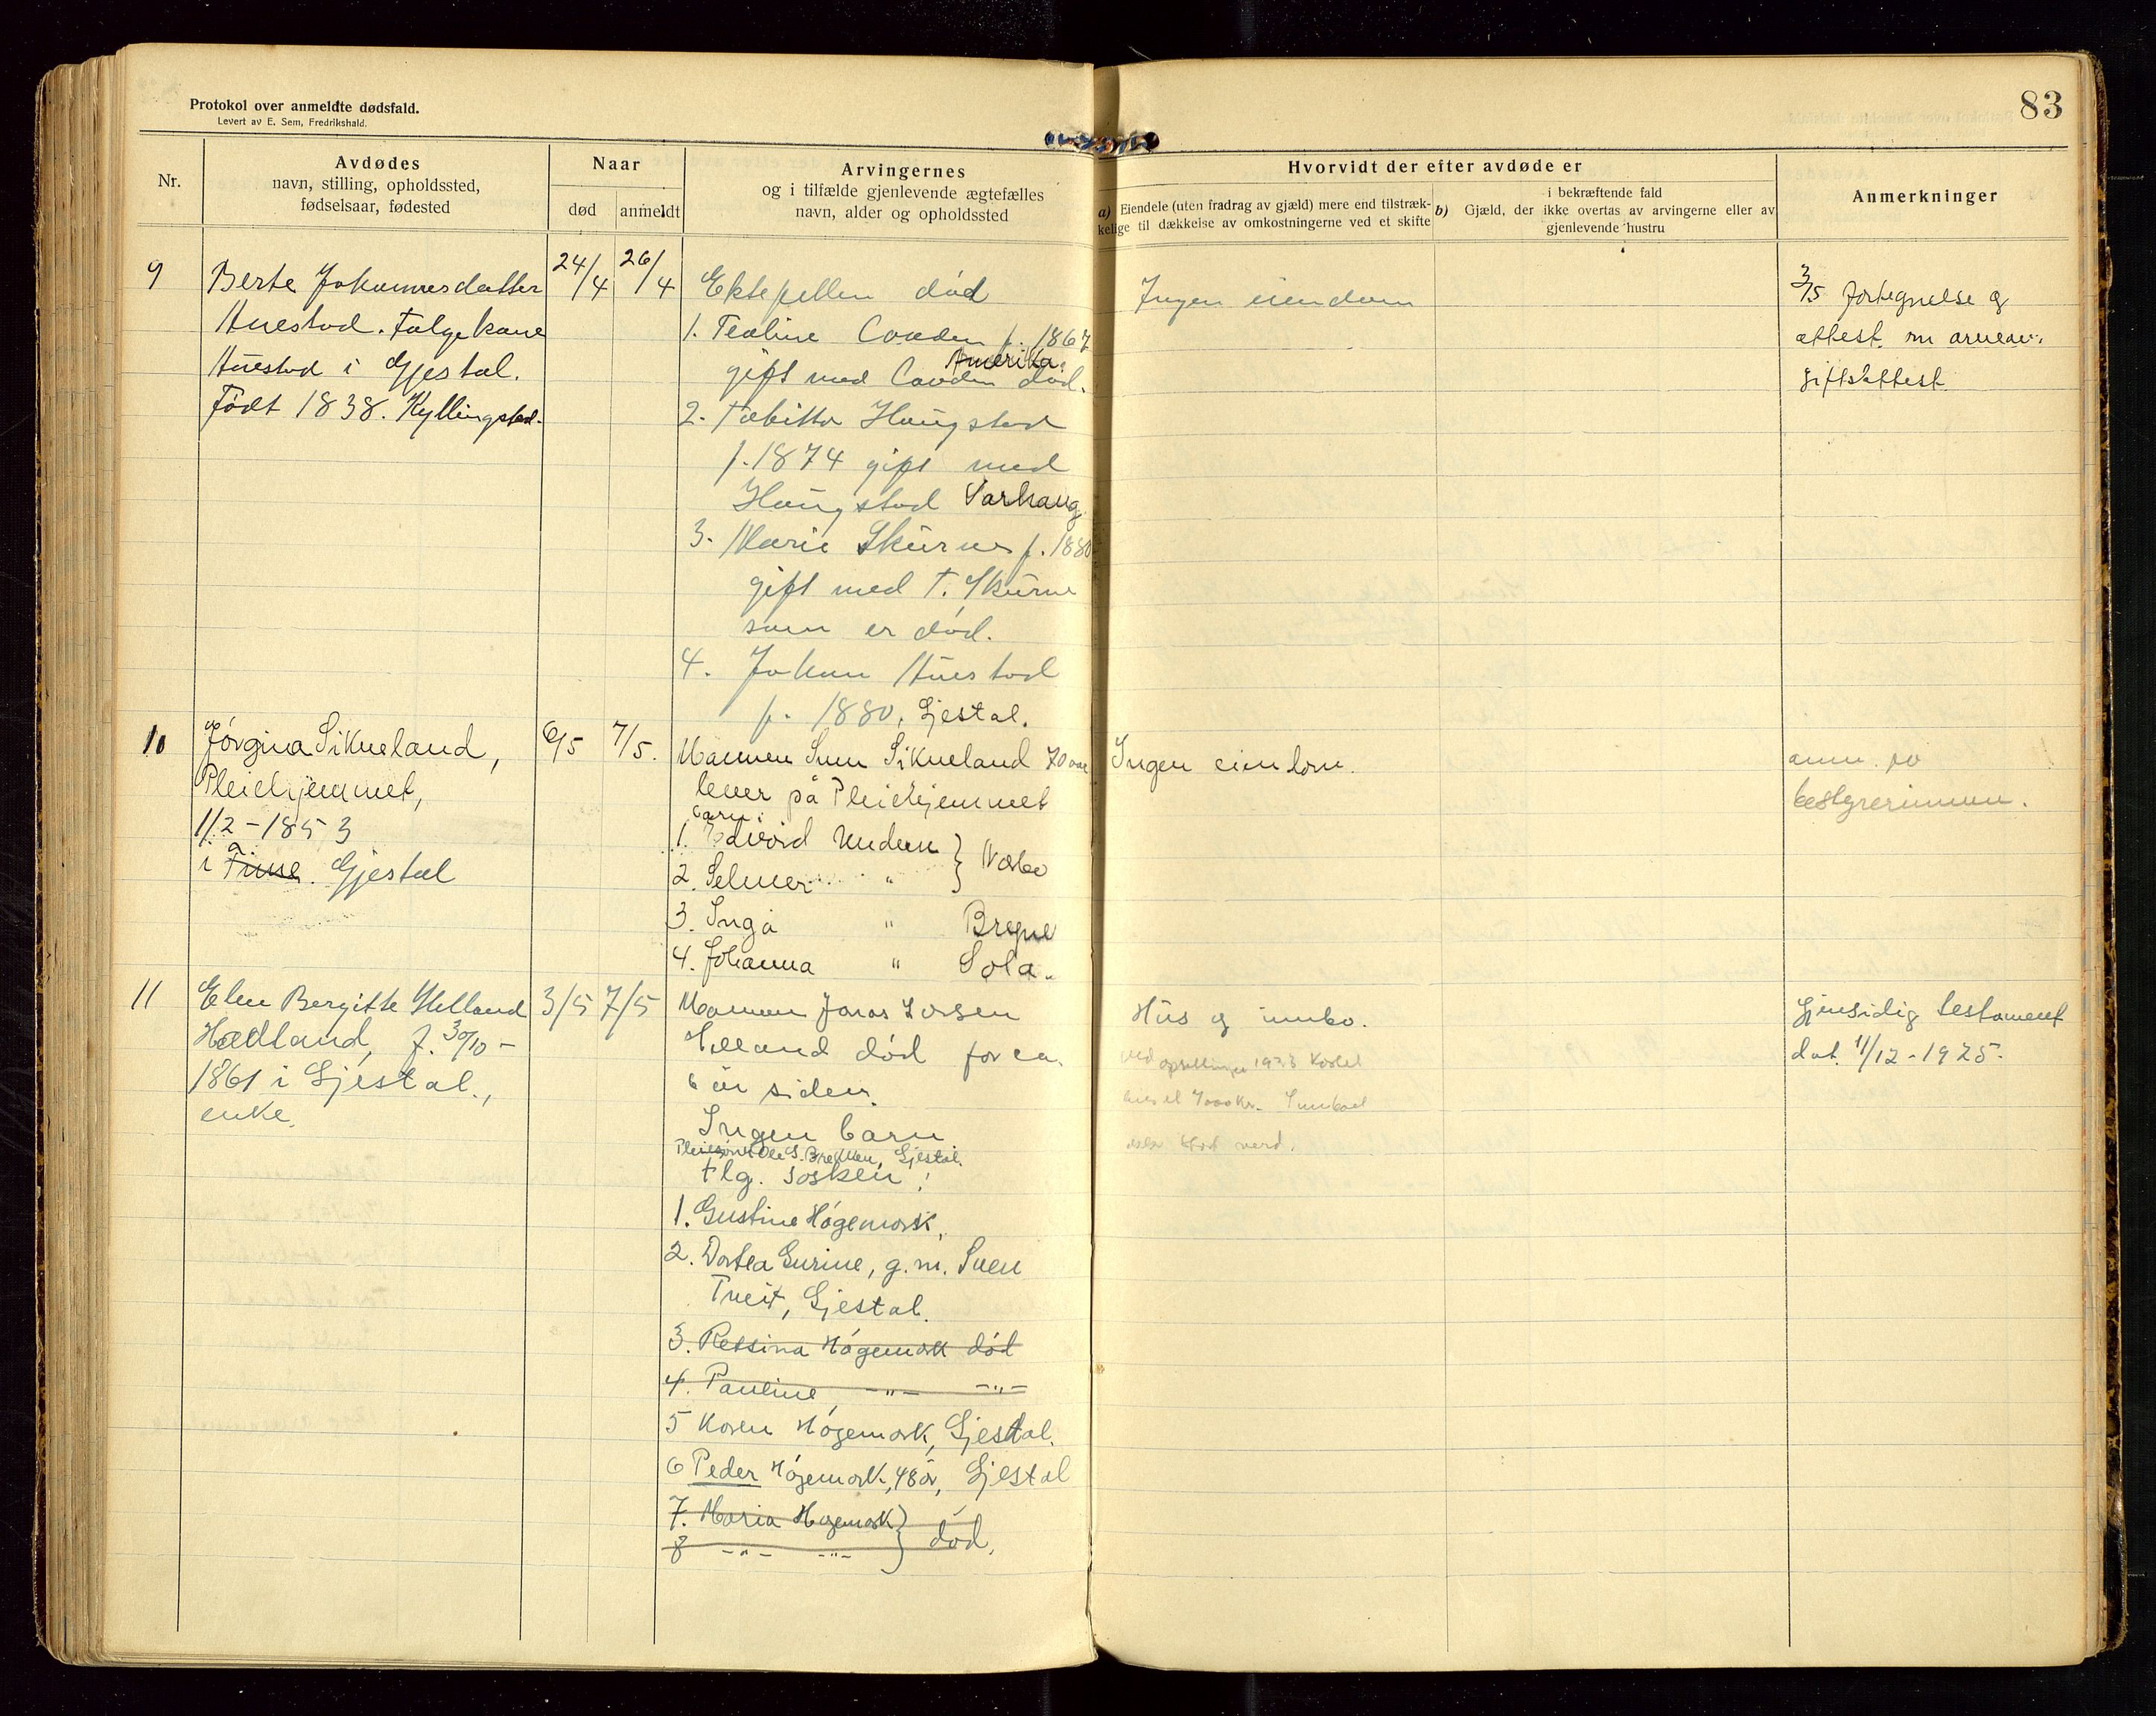 Protokol over anmeldte dødsfald.
Levert av E. Sem, Fredrikshald.
83
Nr.
Avdødes
navn, stilling, opholdssted,
fødselsaar, fødested
Naar
død
anmeldt
Arvingernes
og i tilfælde gjenlevende ægtefælles
navn, alder og opholdssted
Hvorvidt der efter avdøde er
a) Eiendele (uten fradrag av gjæld) mere end tilstræk-
kelige til dækkelse av omkostningerne ved et skifte
b)
i bekræftende fald
Gjæld, der ikke overtas av arvingerne eller av
gjenlevende hustru
Anmerkninger
9
Berte Johannesdatter
Auestad. Følgekone
Auestad i Gjestal.
Født 1838. Kyllingstad.
24/4
26/4
Ektefellen død
1. Tealine Couden f. 1867
Amerika.
gift med Couden død.
2. Tabitta Haugstad
f. 1874 gift med
Haugstad Varhaug
3. Marie Skurve f. 1880
gift med T. Skurve
som er død.
4. Johan Auestad
f. 1880, Gjestal.
Ingen eiendom
3/5 fortegnelse og
attest om arveav-
giftsattest
10
Jørgina Sikveland,
Pleiehjemmet,
1/2 - 1853
i Gjestal
6/5
7/5.
Mannen Sven Sikveland 70 aar
lever på Pleiehjemmet
barn:
1. Edvard
2. Selmer "
3. Inga " Bregne
4. Johanna " Sola.
Ingen eiendom.
anm. av
bestyrerinnen.
11
Elen Bergitte Helland
Hadland, f. 30/10 -
1861 i Gjestal.,
enke.
3/5
7/5
Mannen Jonas Larsen
Helland død for ca.
6 år siden.
Ingen barn
Pleiesønn Ole S. Brekken, Gjestal.
flg. søsken:
1. Gustine Høgemork,
2. Dortea Gurine, g.m. Sven
Tveit, Gjestal.
3. Ressina Høgemork død
4. Pauline -"- -"-
5 Karen Høgemork, Gjestal.
6 Peder Høgemork, 48 år, Gjestal
7. Maria Høgemork
8 -"- -"- } død.
Hus og innbo.
ved 1923 kostet
7000 kr. Innboet
verd.
Gjensidig testament
dat. 11/12 - 1925.